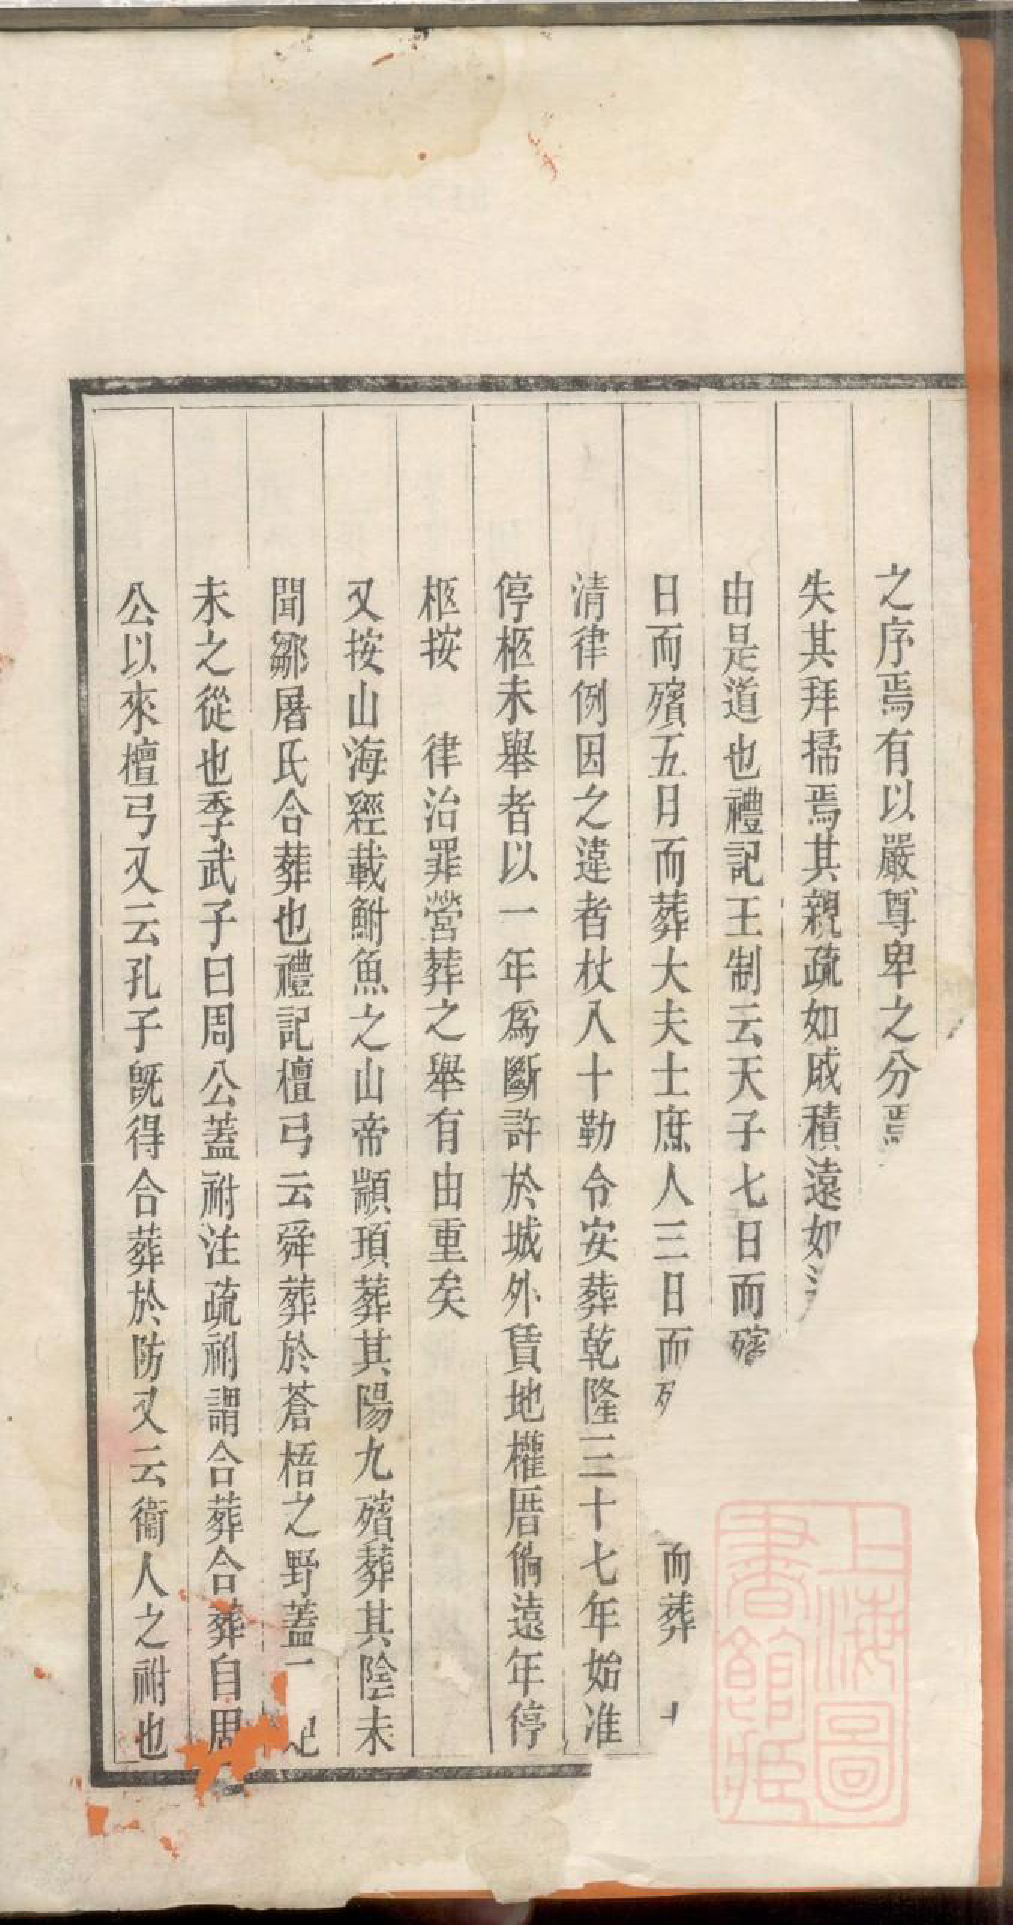 之序焉有以嚴尊卑之分焉
失其拜掃焉其親疏如戚積遠如
由是道也禮記王制云天子七日而殯
日而殯五月而葬大夫士庶人三日而 而葬
清律例因之違者杖八十勒令安葬乾隆三十七年始准
停柩未舉者以一年爲斷許於城外賃地權厝倘遠年停
柩按 律治罪營葬之舉有由重矣
又按山海經載鮒魚之山帝顓頊葬其陽九殯葬其陰未
聞鄒屠氏合葬也禮記檀弓云舜葬於蒼梧之野蓋
未之從也季武子曰周公蓋祔注疏祔謂合葬合葬自周
公以來檀弓又云孔子旣得合葬於防又云衞人之祔也
上海圖
書館藏